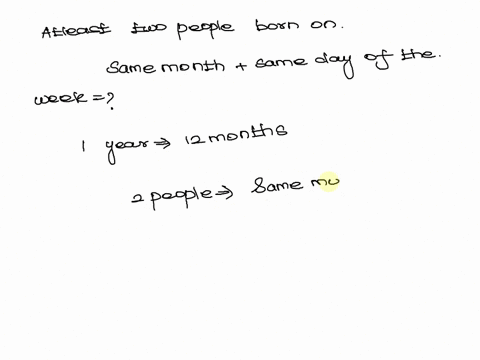 Atleast two people born on.
Same month + same day of the.
week = ?
1 year ⇒ 12 months
2 people ⇒ Same mo